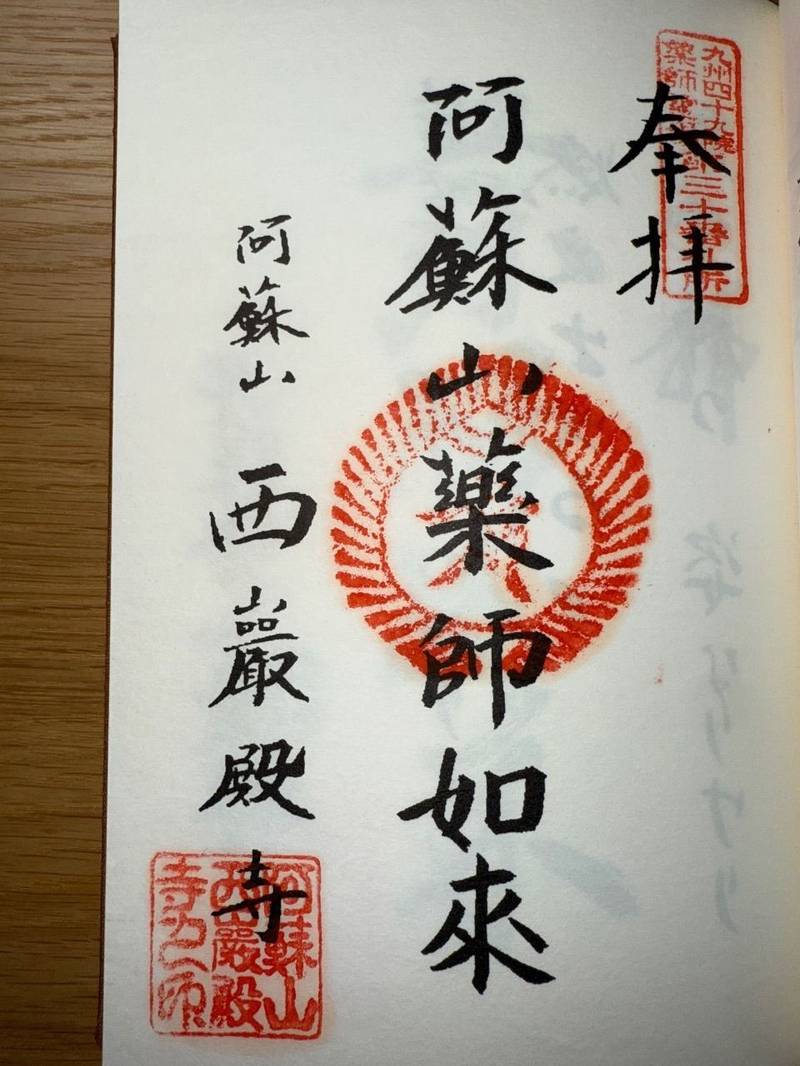 九州四十九院
薬師霊場
第三十番札所
奉拝
阿蘇山藥師如來
阿蘇山 西巖殿寺
阿蘇山
西巖殿
寺之印